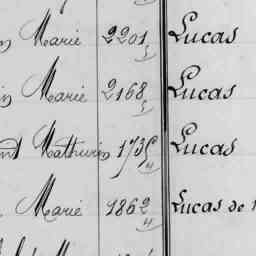 Marie 2201 5 Lucas
Marie 2168 5 Lucas
Mathurin 1735 4 Lucas
Marie 1862 4 Lucas de